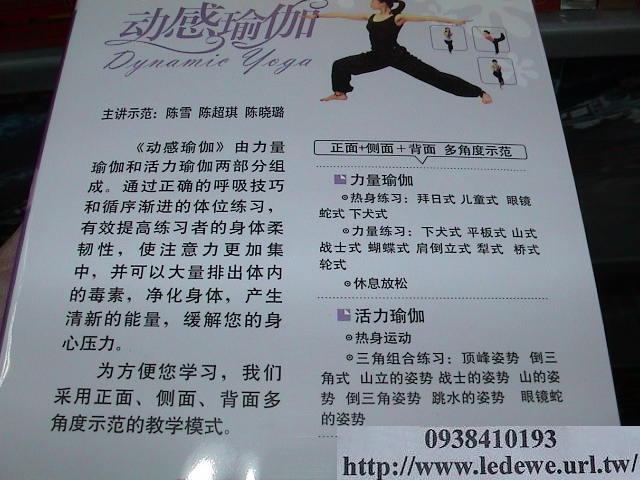 动感瑜伽
Dynamic Yoga
主讲示范：陈雪 陈超琪 陈晓璐
《动感瑜伽》由力量
瑜伽和活力瑜伽两部分组
成。通过正确的呼吸技巧
和循序渐进的体位练习，
有效提高练习者的身体柔
韧性，使注意力更加集
中，并可以大量排出体内
的毒素，净化身体，产生
清新的能量，缓解您的身
心压力。
为方便您学习，我们
采用正面、侧面、背面多
角度示范的教学模式。
正面+侧面＋背面 多角度示范
力量瑜伽
热身练习：拜日式 儿童式 眼镜
蛇式 下犬式
力量练习：下犬式 平板式 山式
战士式 蝴蝶式 肩倒立式 犁式 桥式
轮式
休息放松
活力瑜伽
热身运动
三角组合练习：顶峰姿势 倒三
角式 山立的姿势 战士的姿势 山的姿
势 倒三角姿势 跳水的姿势 眼镜蛇
的姿势
0938410193
http://www.ledewe.url.tw/